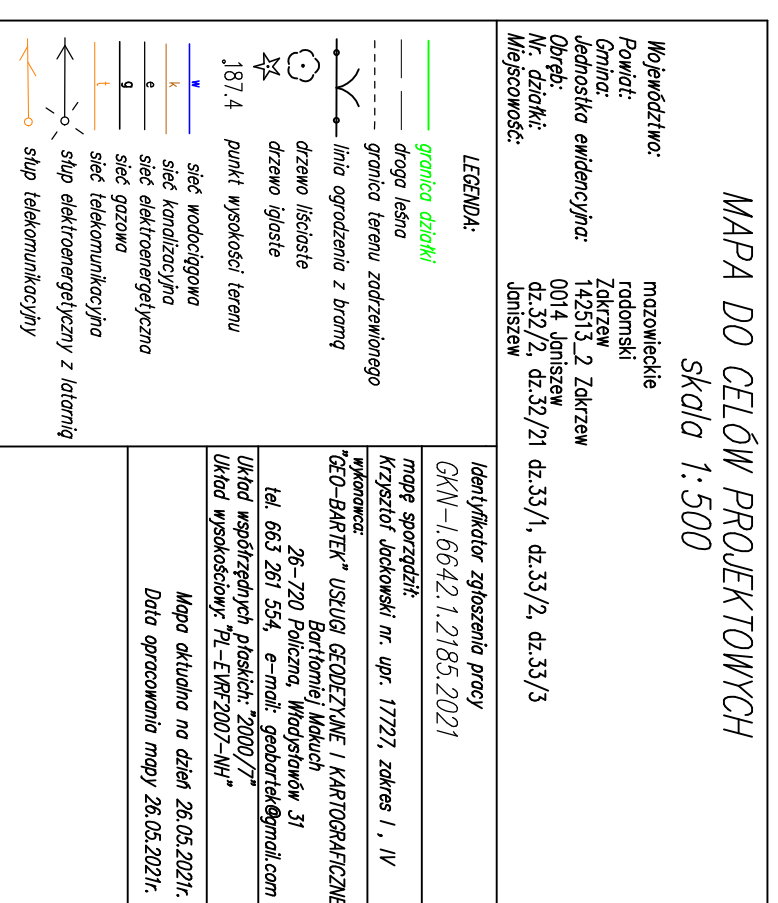 MAPA DO CELÓW PROJEKTOWYCH
skala 1:500
Województwo: mazowieckie
Powiat: radomski
Gmina: Zakrzew
Jednostka ewidencyjna: 142513_2 Zakrzew
Obręb: 0014 Janiszew
Nr. działki: dz.32/2, dz.32/21 dz.33/1, dz.33/2, dz.33/3
Miejscowość: Janiszew
LEGENDA:
granica działki
droga leśna
granica terenu zadrzewionego
linia ogrodzenia z bramą
drzewo liściaste
drzewo iglaste
187.4 punkt wysokości terenu
w sieć wodociągowa
k sieć kanalizacyjna
e sieć elektroenergetyczna
g sieć gazowa
t sieć telekomunikacyjna
słup elektroenergetyczny z latarnią
słup telekomunikacyjny
Identyfikator zgłoszenia pracy
GKN-I.6642.1.2185.2021
mapę sporządził:
Krzysztof Jackowski nr. upr. 17727, zakres I , IV
wykonawca:
"GEO-BARTEK" USŁUGI GEODEZYJNE I KARTOGRAFICZNE
Bartłomiej Makuch
26-720 Policzna, Władysławów 31
tel. 663 261 554, e-mail: geobartek@gmail.com
Układ współrzędnych płaskich: "2000/7"
Układ wysokościowy: "PL-EVRF2007-NH"
Mapa aktualna na dzień 26.05.2021r.
Data opracowania mapy 26.05.2021r.